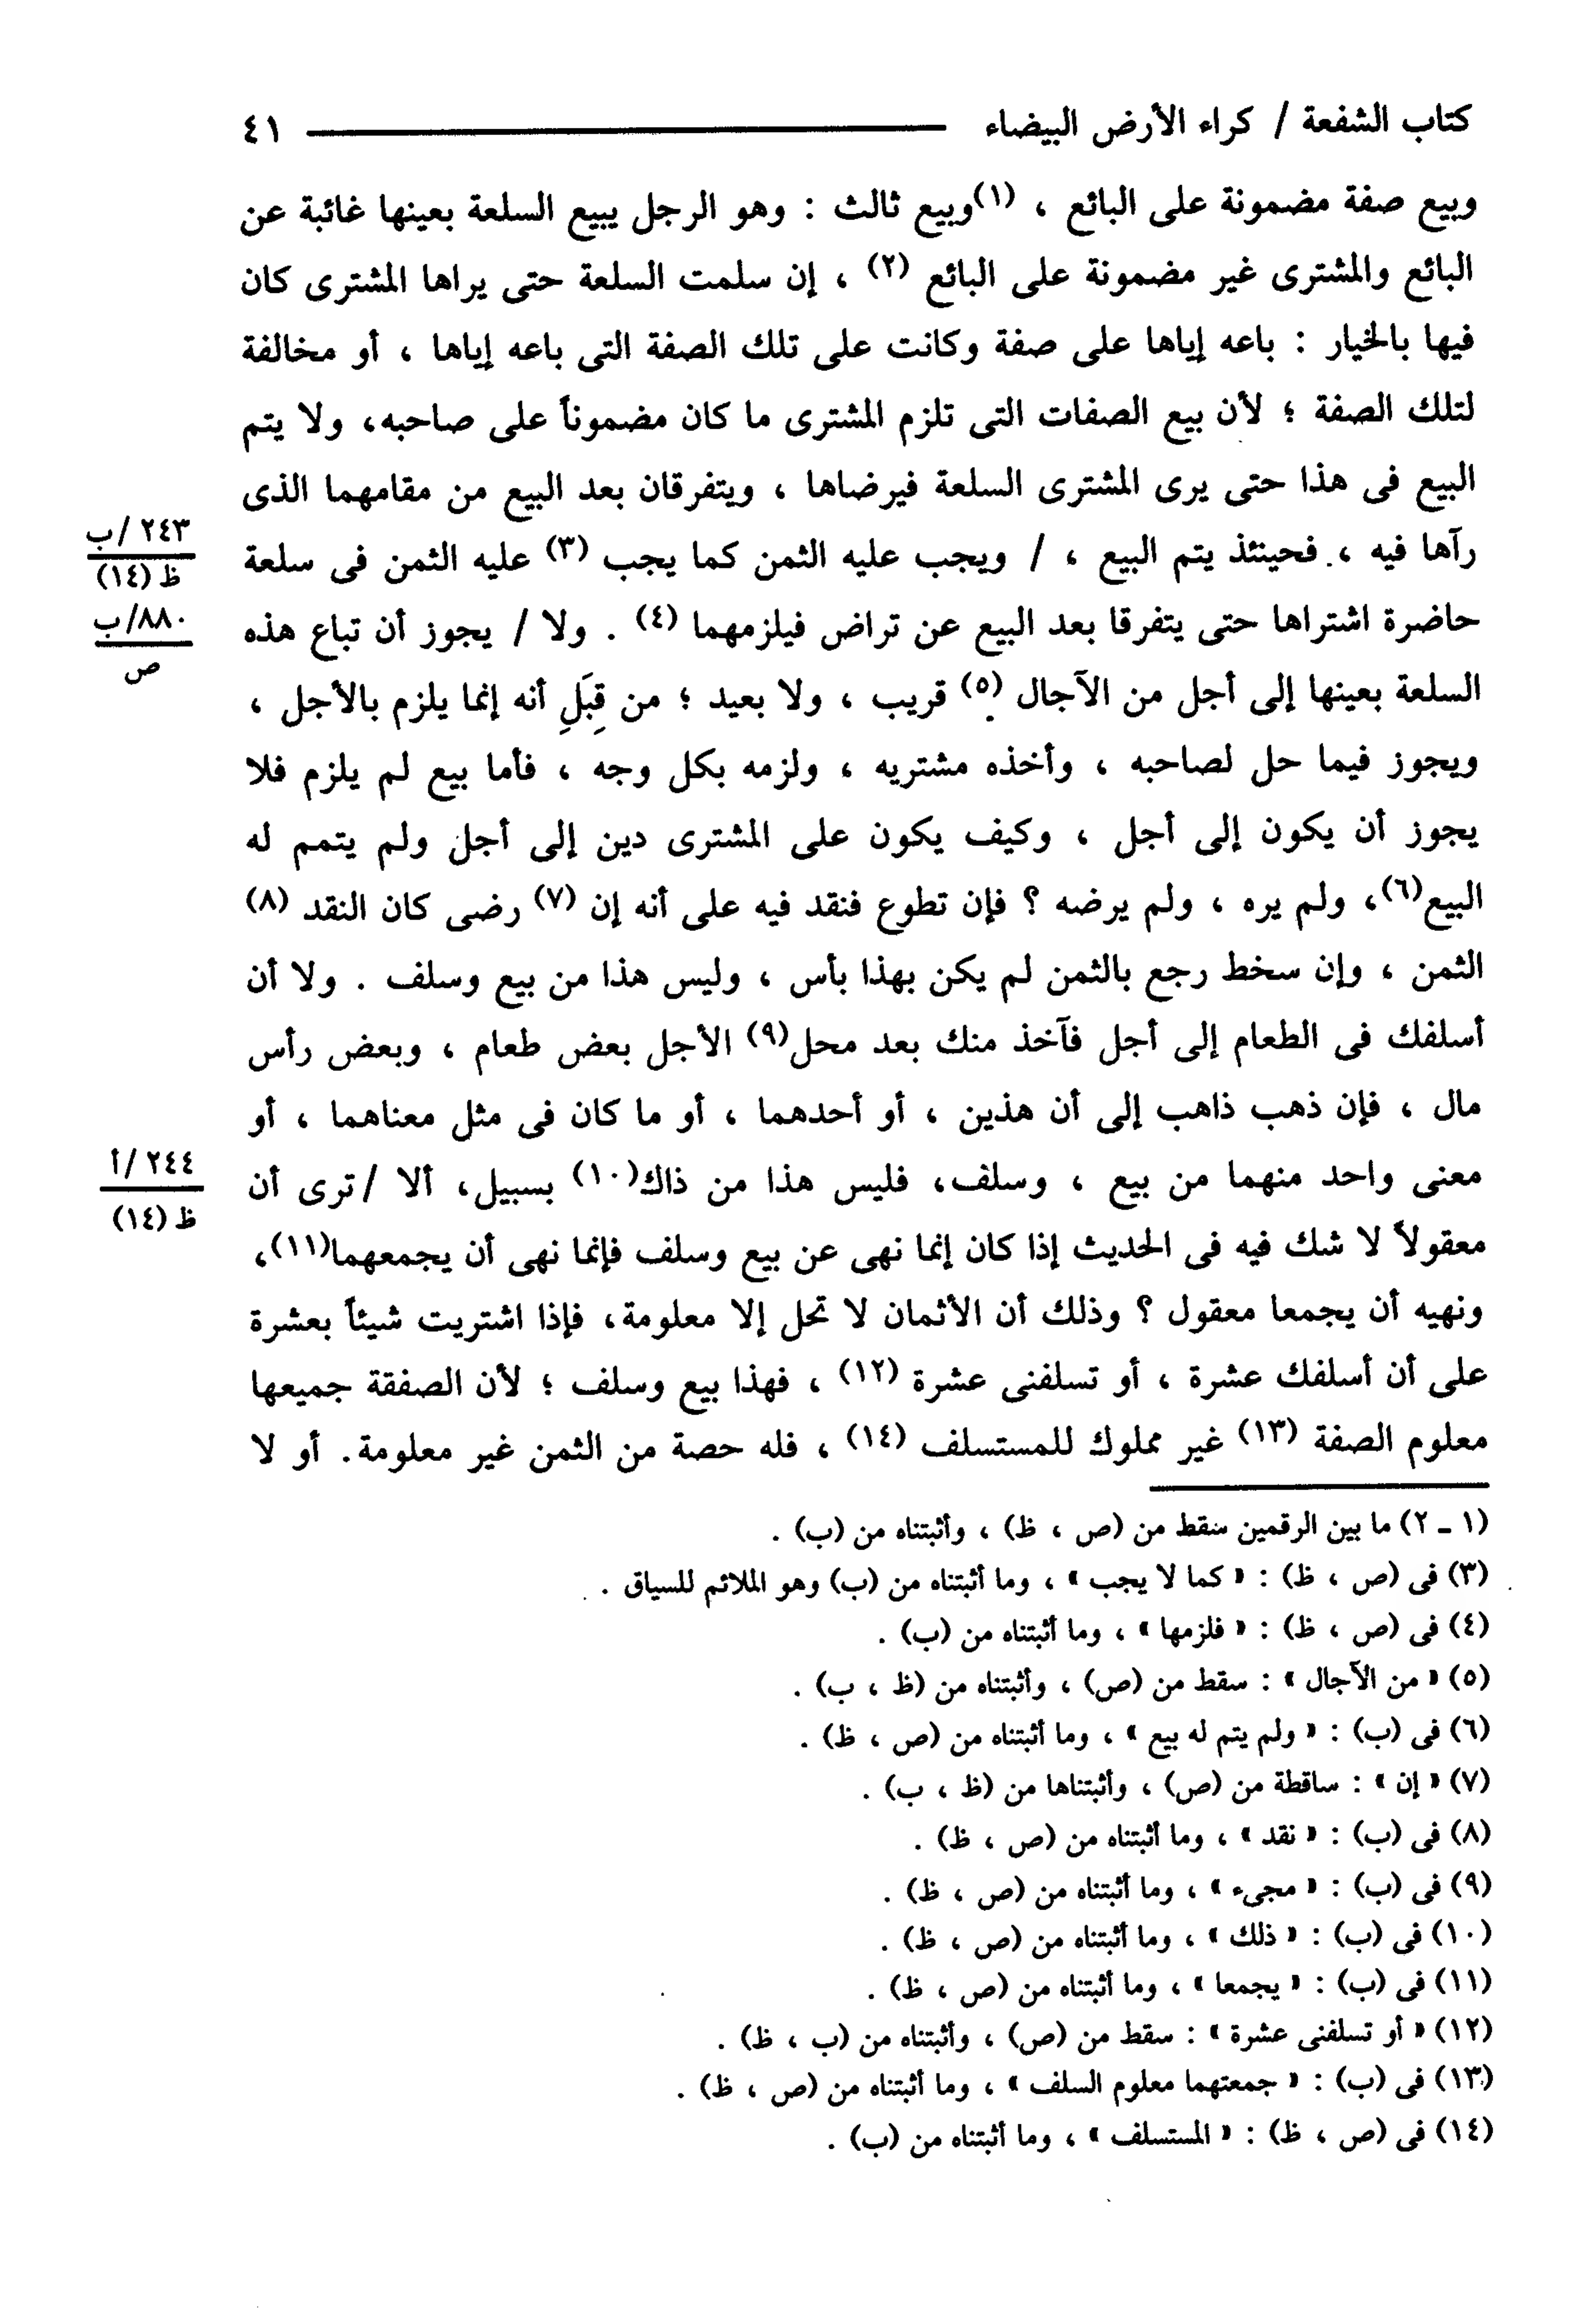 كتاب الشفعة / كراء الأرض البيضاء ٤١
وبيع صفة مضمونة على البائع ، (١)وبيع ثالث : وهو الرجل يبيع السلعة بعينها غائبة عن
البائع والمشترى غير مضمونة على البائع (٢) ، إن سلمت السلعة حتى يراها المشترى كان
فيها بالخيار : باعه إياها على صفة وكانت على تلك الصفة التى باعه إياها ، أو مخالفة
لتلك الصفة ؛ لأن بيع الصفات التى تلزم المشترى ما كان مضموناً على صاحبه، ولا يتم
البيع فى هذا حتى يرى المشترى السلعة فيرضاها ، ويتفرقان بعد البيع من مقامهما الذى
رآها فيه ، فحينئذ يتم البيع ، / ويجب عليه الثمن كما يجب (٣) عليه الثمن فى سلعة
٢٤٣/ب
ظ (١٤)
حاضرة اشتراها حتى يتفرقا بعد البيع عن تراض فيلزمهما (٤) . ولا / يجوز أن تباع هذه
٨٨٠/ب
ص
السلعة بعينها إلى أجل من الآجال (٥) قريب ، ولا بعيد ؛ من قِبَلِ أنه إنما يلزم بالأجل ،
ويجوز فيما حل لصاحبه ، وأخذه مشتريه ، ولزمه بكل وجه ، فأما بيع لم يلزم فلا
يجوز أن يكون إلى أجل ، وكيف يكون على المشترى دين إلى أجل ولم يتمم له
البيع(٦)، ولم يره ، ولم يرضه ؟ فإن تطوع فنقد فيه على أنه إن (٧) رضى كان النقد (٨)
الثمن ، وإن سخط رجع بالثمن لم يكن بهذا بأس ، وليس هذا من بيع وسلف . ولا أن
أسلفك فى الطعام إلى أجل فآخذ منك بعد محل(٩) الأجل بعض طعام ، وبعض رأس
مال ، فإن ذهب ذاهب إلى أن هذين ، أو أحدهما ، أو ما كان فى مثل معناهما ، أو
معنى واحد منهما من بيع ، وسلف، فليس هذا من ذاك(١٠) بسبيل، ألا /ترى أن
٢٤٤/أ
ظ (١٤)
معقولاً لا شك فيه فى الحديث إذا كان إنما نهى عن بيع وسلف فإنما نهى أن يجمعهما(١١)،
ونهيه أن يجمعا معقول ؟ وذلك أن الأثمان لا تحل إلا معلومة، فإذا اشتريت شيئاً بعشرة
على أن أسلفك عشرة ، أو تسلفنى عشرة (١٢) ، فهذا بيع وسلف ؛ لأن الصفقة جميعها
معلوم الصفة (١٣) غير مملوك للمستسلف (١٤) ، فله حصة من الثمن غير معلومة. أو لا
(١ ـ ٢) ما بين الرقمين سقط من (ص ، ظ) ، وأثبتناه من (ب) .
(٣) فى (ص ، ظ) : « كما لا يجب » ، وما أثبتناه من (ب) وهو الملائم للسياق .
(٤) فى (ص ، ظ) : « فلزمها » ، وما أثبتناه من (ب) .
(٥) « من الآجال » : سقط من (ص) ، وأثبتناه من (ظ ، ب) .
(٦) فى (ب) : « ولم يتم له بيع » ، وما أثبتناه من (ص ، ظ) .
(٧) « إن » : ساقطة من (ص) ، وأثبتناها من (ظ ، ب) .
(٨) فى (ب) : « نقد » ، وما أثبتناه من (ص ، ظ) .
(٩) فى (ب) : « مجىء » ، وما أثبتناه من (ص ، ظ) .
(١٠) فى (ب) : « ذلك » ، وما أثبتناه من (ص ، ظ) .
(١١) فى (ب) : « يجمعا » ، وما أثبتناه من (ص ، ظ) .
(١٢) « أو تسلفنى عشرة » : سقط من (ص) ، وأثبتناه من (ب ، ظ) .
(١٣) فى (ب) : « جمعتهما معلوم السلف » ، وما أثبتناه من (ص ، ظ) .
(١٤) فى (ص ، ظ) : « المستسلف » ، وما أثبتناه من (ب) .